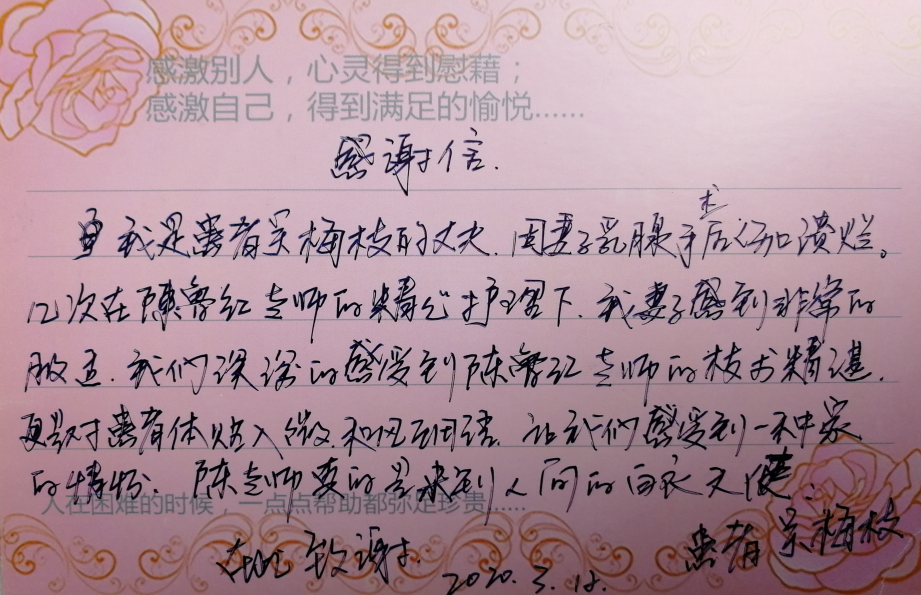 感激别人，心灵得到慰藉；
感激自己，得到满足的愉悦……
感谢信.
我是患者吴梅枝的丈夫.因妻子乳腺手术后伤口溃烂。
几次在陈鲁红老师的精心护理下.我妻子感到非常的
服.我们深深的感受到陈鲁红老师的枝术精湛.
更是对患者体贴入微.和风细语.让我们感受到一种家
的情份.陈老师真的是来到人间的白衣天使.
人在困难的时候，一点点帮助都弥足珍贵……
在此致谢.
患者吴梅枝
2020.3.